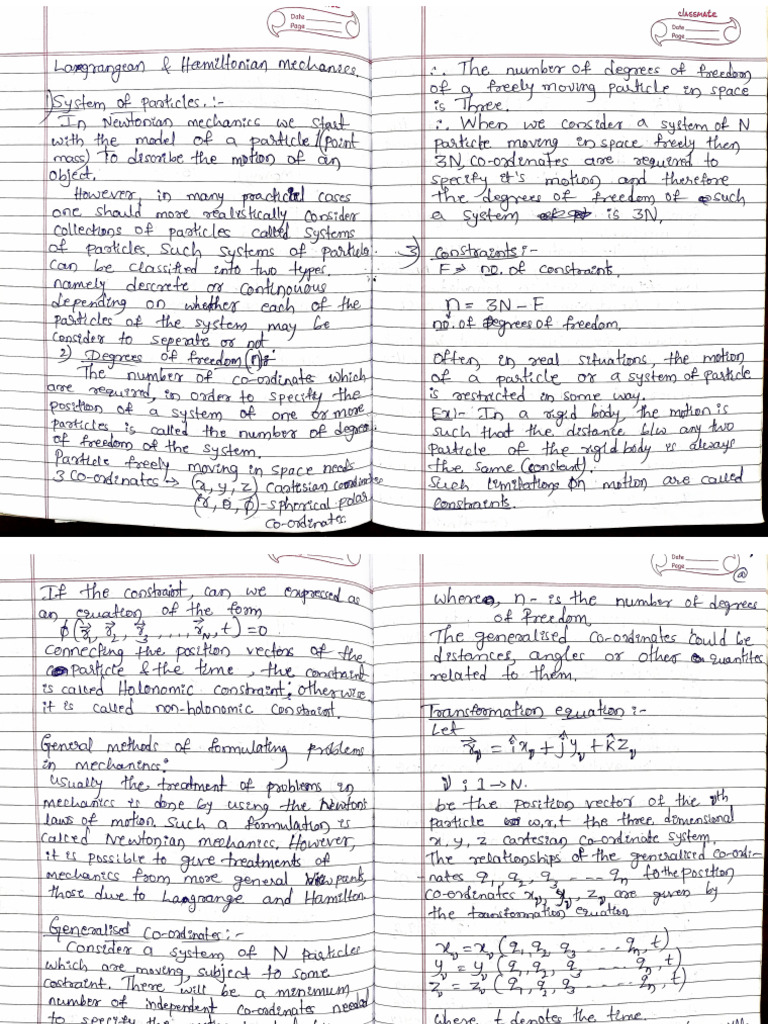 Date
Page
Langrangean & Hamiltonian mechanics.
1) System of particles. :-
In Newtonian mechanics we start
with the model of a particle (point
mass) to discribe the motion of an
object.
However, in many practical cases
one should more realistically consider
collections of particles called systems
of particles. Such systems of particle
can be classified into two types.
namely descrete or continuous
depending on whether each of the
particles of the system may be
consider to seperate or not
2) Degrees of freedom (n) :-
The number of co-ordinates which
are required, in order to specify the
position of a system of one or more
particles is called the number of degree
of freedom of the system.
Particle freely moving in space needs
3 co-ordinates → (x, y, z) Cartesian coordinates
(r, θ, ϕ) - spherical polar
co-ordinates
classmate
Date
Page
∴ The number of degrees of freedom
of a freely moving particle in space
is Three.
∴ When we consider a system of N
particle moving in space freely then
3N, co-ordinates are required to
specify it's motion and therefore
the degrees of freedom of such
a system is 3N.
3) Constraints :-
F ⇒ no. of constraints.
n = 3N - F
no. of Degrees of freedom.
Often, in real situations, the motion
of a particle or a system of particle
is restricted in some way.
Ex:- In a rigid body, the motion is
such that the distance b/w any two
particle of the rigid body is always
the same (constant).
Such limitations on motion are called
constraints.
If the constraint, can we expressed as
an equation of the form
ϕ(r⃗1, r⃗2, r⃗3, ...., r⃗N, t) = 0
connecting the position vectors of the
particle & the time, the constraint
is called Holonomic constraint; otherwise
it is called non-holonomic constraint.
General methods of formulating problems
in mechanincs:
Usually the treatment of problems in
mechanics is done by using the Newton's
laws of motion. Such a formulation is
called Newtonian mechanics. However,
it is possible to give treatments of
mechanics from more general view point,
those due to Langrange and Hamilton.
Generalised co-ordinates :-
Consider a system of N particles
which are moving, subject to some
costraint. There will be a minimum
number of independent co-ordinates needed
to specify the
Date
Page
where, n - is the number of degrees
of freedom.
The generalised co-ordinates could be
distances, angles or other quantites
related to them.
Transformation equation :-
Let
r⃗ν = îxν + ĵyν + k̂zν
ν ; 1 → N.
be the position vector of the νth
particle w.r.t the three dimensional
x, y, z cartesian co-ordinate system.
The relationships of the generalised co-ordi-
-nates q1, q2, q3 ---- qn to the position
co-ordinates xν, yν, zν are given by
the transformation equation
xν = xν (q1, q2, q3 ---- qn, t)
yν = yν (q1, q2, q3 ---- qn, t)
zν = zν (q1, q2, q3 ---- qn, t)
where t denotes the time.